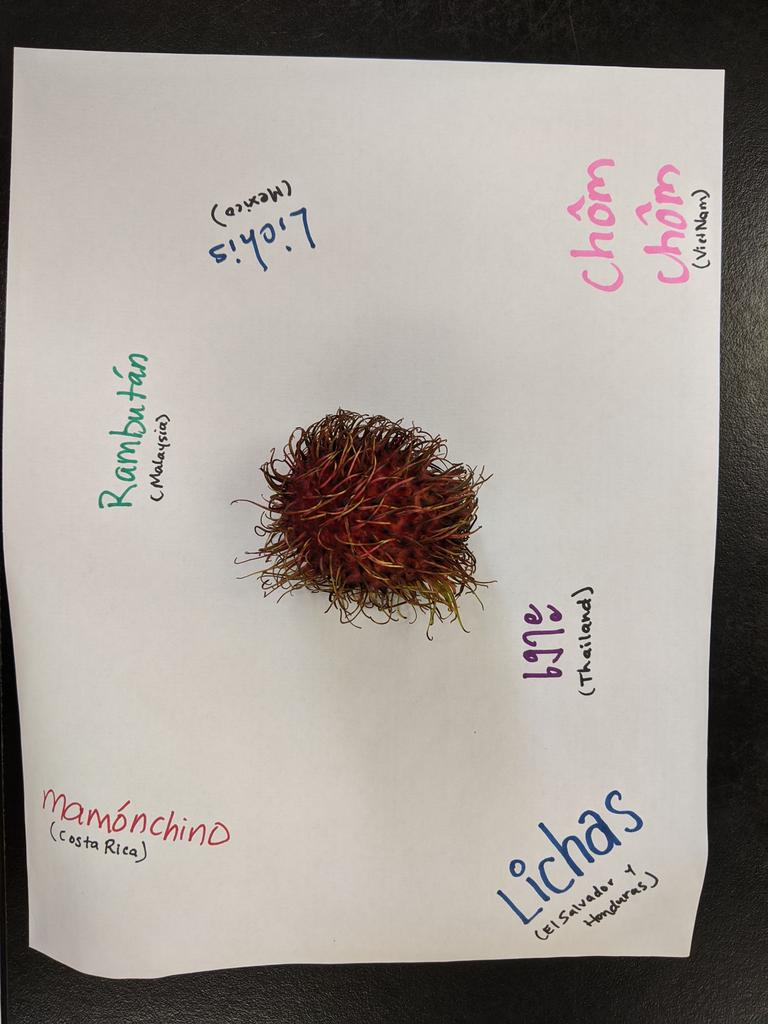 Lichis
(Mexico)
Chôm
Chôm
(VietNam)
Rambután
(Malaysia)
เงาะ
(Thailand)
mamónchino
(Costa Rica)
Lichas
(El Salvador y
Honduras)